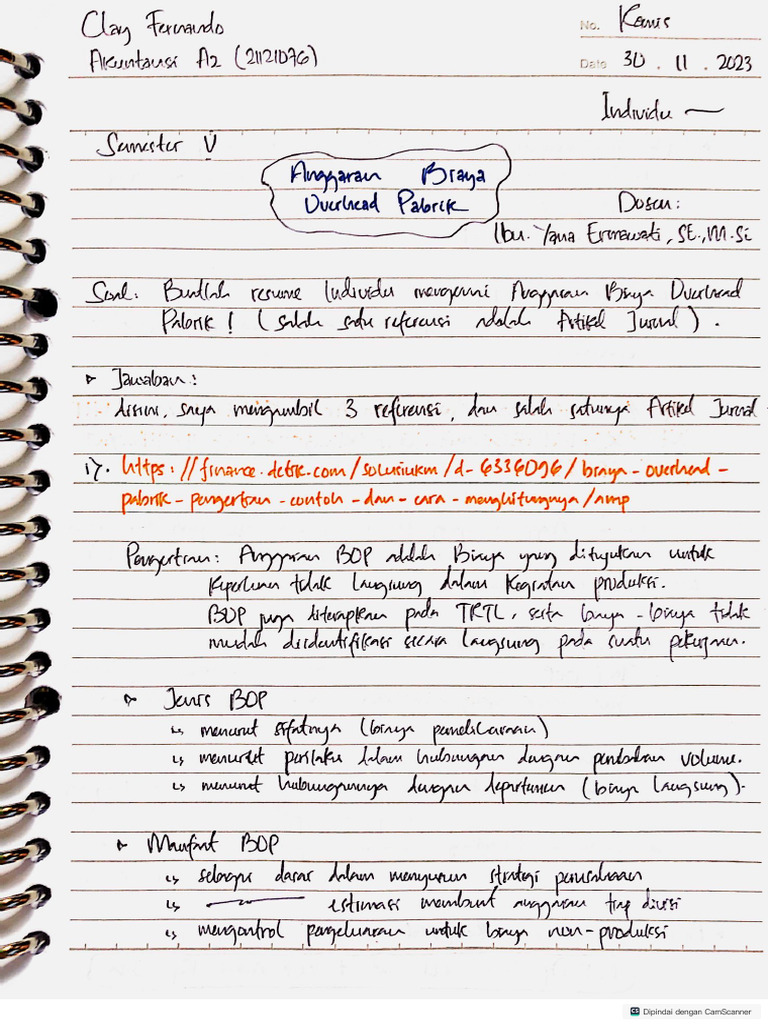 Clay Fernando
No. Kamis
Akuntansi A2 (21121076)
Date 30 . 11 . 2023
Individu
Semester V
Anggaran Biaya
Overhead Pabrik
Dosen :
Ibu. Yana Ermawati, SE.,M.Si
Soal : Buatlah resume Individu mengenai Anggaran Biaya Overhead
Pabrik ! (salah satu referensi adalah Artikel Jurnal) .
Jawaban :
disini, saya mengambil 3 referensi, dan salah satunya Artikel Jurnal
i). https://finance.detik.com/solusiukm/d-6336096/biaya-overhead-
pabrik-pengertian-contoh-dan-cara-menghitungnya/amp
Pengertian : Anggaran BOP adalah Biaya yang ditujukan untuk
keperluan tidak langsung dalam kegiatan produksi.
BOP juga diterapkan pada TKTL, serta biaya-biaya tidak
mudah diidentifikasi secara langsung pada suatu pekerjaan.
Jenis BOP
↳ menurut sifatnya (biaya pemeliharaan)
↳ menurut perilaku dalam hubungan dengan perubahan volume.
↳ menurut hubungannya dengan departemen (biaya langsung).
Manfaat BOP
↳ sebagai dasar dalam menyusun strategi perusahaan
↳ estimasi membuat anggaran tiap divisi
↳ mengontrol pengeluaran untuk biaya non-produksi
Dipindai dengan CamScanner